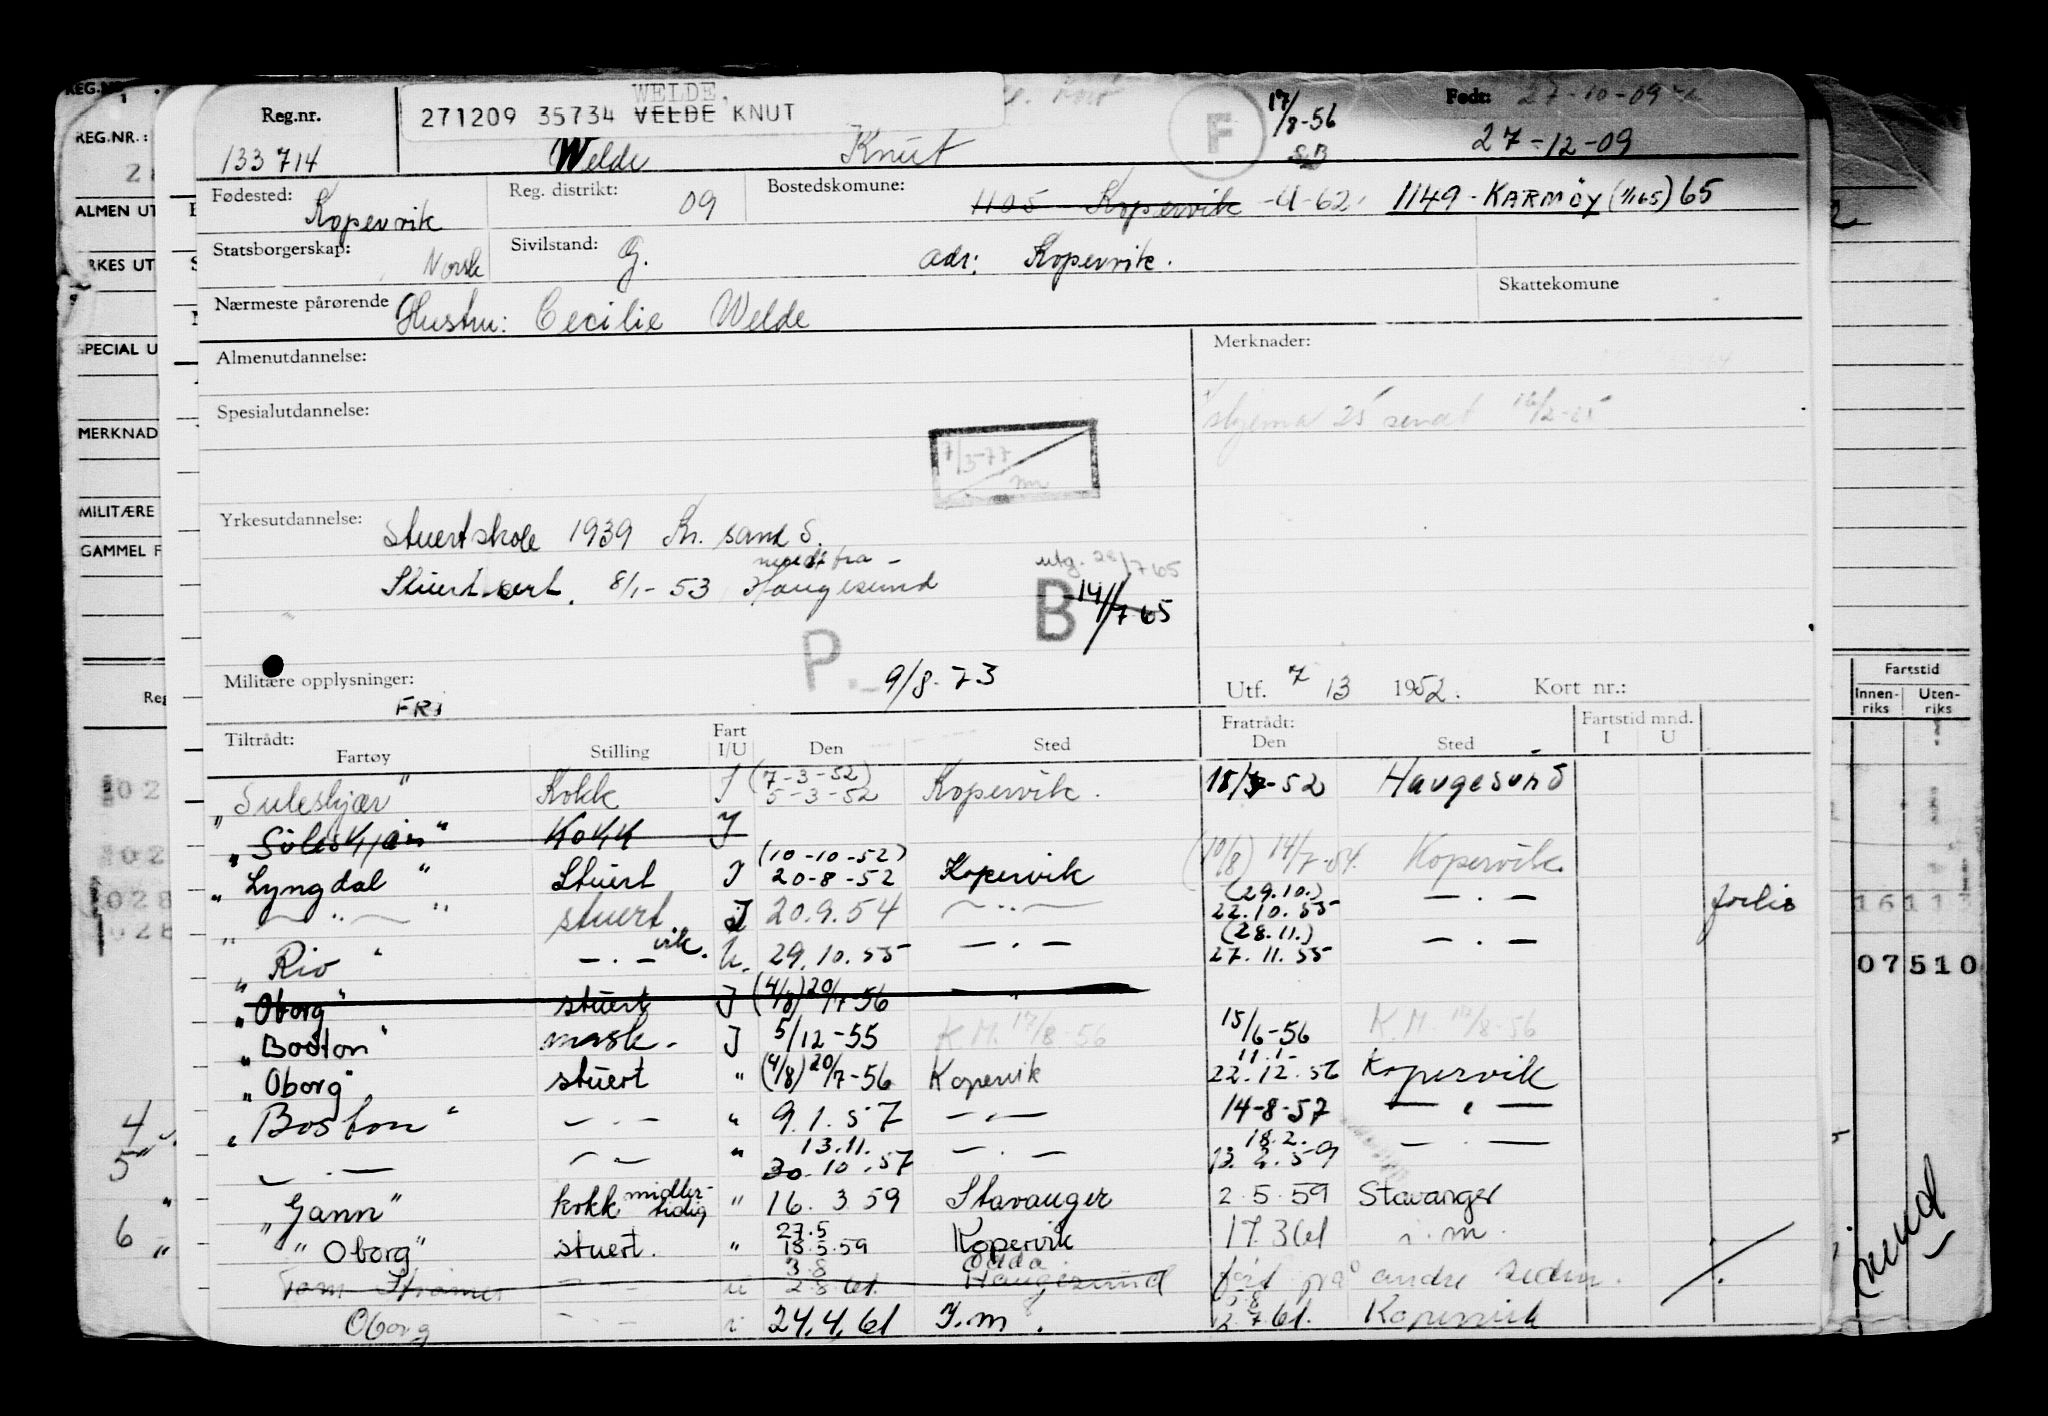 Reg.nr.
WELDE,
271209 35734 VELDE KNUT
17/8-56
Født: 27-10-09
F
SB
133714 Welde Knut 27-12-09
Fødested: Kopervik
Reg. distrikt: 09
Bostedskomune: 1105 Kopervik -4-62. 1149 - KARMØY (1/1 65) 65
Statsborgerskap: Norsk
Sivilstand: G.
adr: Kopervik.
Nærmeste pårørende Hustru: Cecilie Welde
Skattekomune
Almenutdannelse:
Merknader:
Spesialutdannelse:
skjema 25 sendt
7/3-77
Yrkesutdannelse: Stuertskole 1939 Kr. sand S.
Stuert.sert. 8/1-53 Haugesund
B 14/7 65
P.
Militære opplysninger: FRI
9/8-73
Utf. 7 13 1952. Kort nr.:
Tiltrådt:
Fartøy Stilling Fart I/U Den Sted
Fratrådt:
Den Sted
Fartstid mnd.
I U
"Suleskjær" Kokk I (7-3-52) 5-3-52 Kopervik. Haugesund
"Suleskjær" Kokk I
"Lyngdal" Stuert I (10-10-52) 20-8-52 Kopervik (10/8) 14/7-54. Kopervik
— " — " stuert I 20.9.54 — " — (29.10.) 22.10.55 — . — forlis
"Rio" — . — vik. U. 29.10.55 — . — (28.11.) 27.11.55 — . —
"Oborg" stuert I (4/8) 20/7-56 — " —
"Boston" mask. I 5/12-55 K.M. 17/8-56 15/6-56 K.M. 17/8-56
"Oborg" stuert " (4/8) 20/7-56 Kopervik 11.1- 22.12.56 Kopervik
"Boston" — . — " 9.1.57 — . — 14-8-57 — . —
— . — — — " 13.11. 30.10.57 — . — 18.2. — . —
"Gann" kokk midlertidig " 16.3.59 Stavanger 2.5.59 Stavanger
"Oborg" stuert. " 27.5 15.5.59 Kopervik 17.3 61 i.m.
Tom Strømer — — u 3.8 2.8.61. Odda Haugesund ført på andre siden.
Oborg — . — i 24.4.61 I.m. 5.8 2.7.61. Kopervik
REG.NR.:
ALMEN UT
RKES UT
SPECIAL U
MERKNAD
MILITÆRE
GAMMEL F
Reg
028
028
4
5
6
Fartstid
Innen-
riks
Uten-
riks
16113
07510